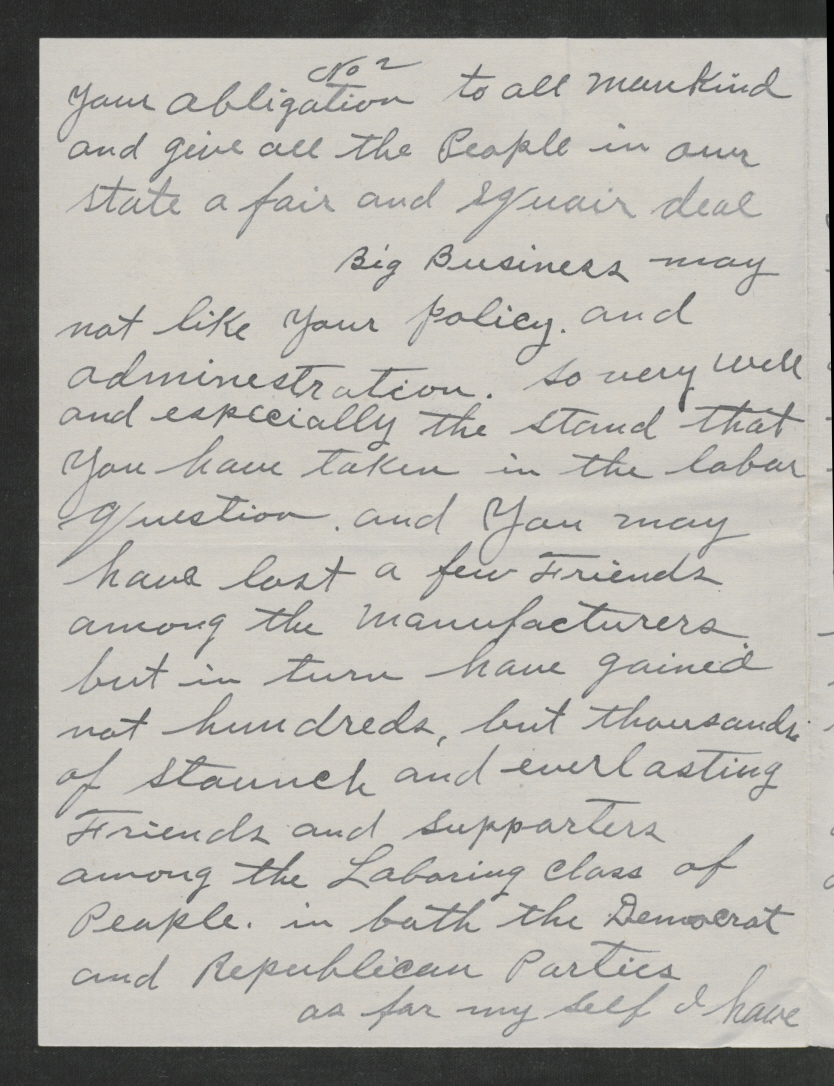 No 2
Your obligation to all mankind
and give all the People in our
state a fair and squair deal
Big Business may
not like Your policy. and
adminestration. so very well
and especially the stand that
You have taken in the labor
question. and You may
have lost a few Friends
among the Manufacturers
but in turn have gained
not hundreds, but thousands.
of staunch and everlasting
Friends and supporters
among the Laboring Class of
People. in both the Democrat
and Republican Parties
as far my self I have